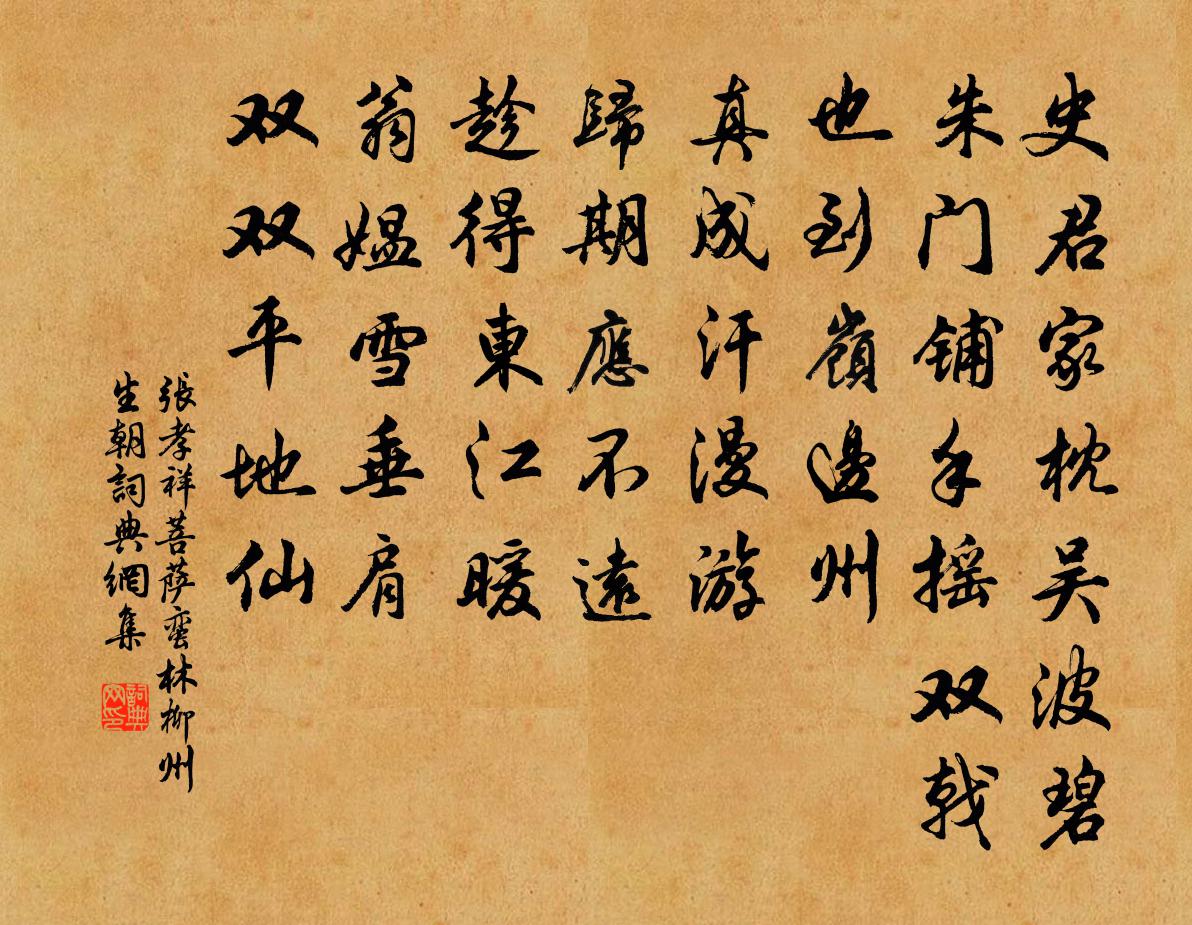 史君家枕吴波碧
朱门铺手摇双戟
也到嶺邊州
真成汗漫游
歸期應不遠
趁得東江暖
翁媪雪垂肩
双双平地仙
張孝祥菩萨蛮林柳州
生朝詞典網集
詞典网印